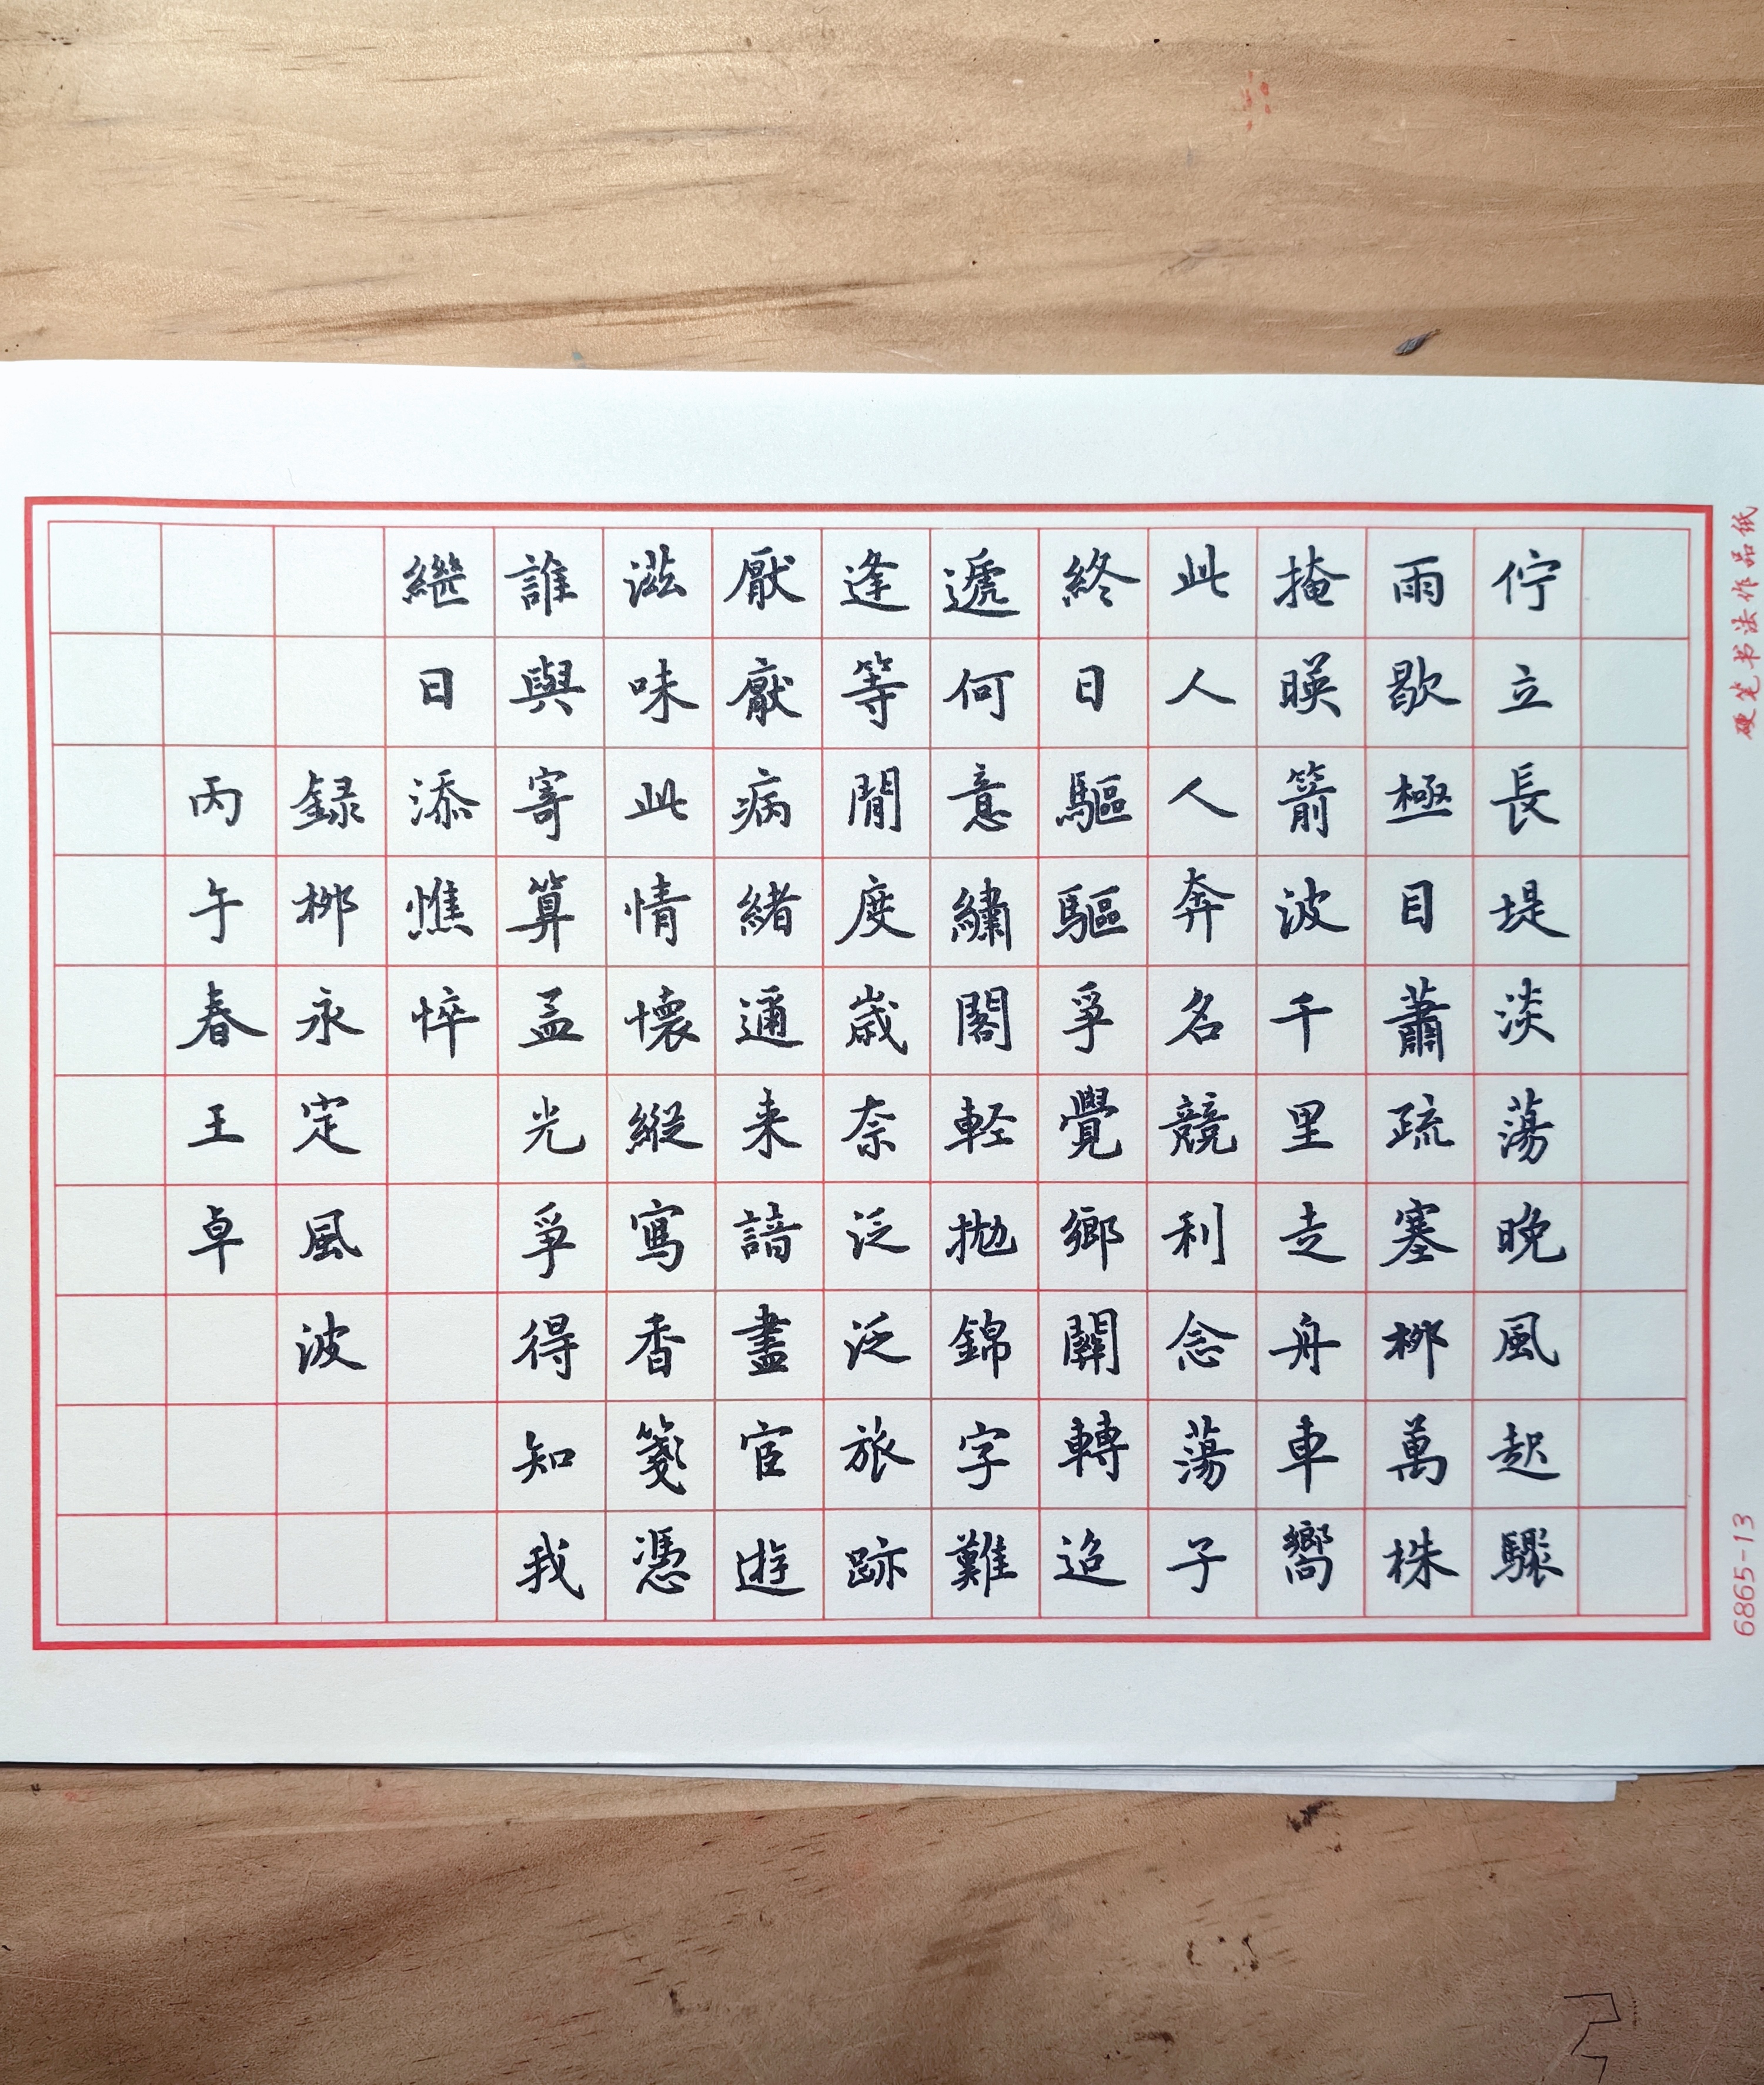 佇立長堤淡蕩晚風起驟
雨歇極目蕭疏塞栁萬株
掩暎箭波千里走舟車嚮
此人人奔名競利念蕩子
終日驅驅爭覺鄉關轉迢
遞何意繡閣軽拋錦字難
逢等閒度歲奈泛泛旅跡
厭厭病緒邇来諳盡宦遊
滋味此情懷縱寫香箋憑
誰與寄算孟光爭得知我
繼日添憔悴
録栁永定風波
丙午春王卓
硬笔书法作品纸
6865-13